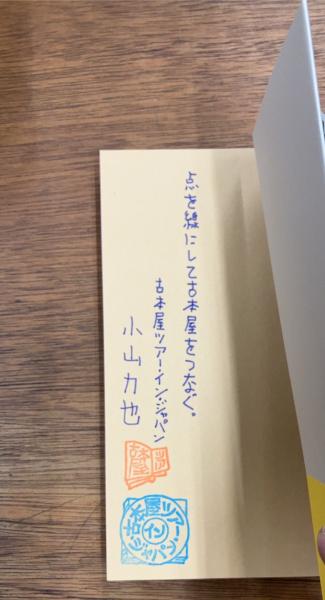 点を線にして古本屋をつなぐ。
古本屋ツアー・イン・ジャパン
小山力也
古本屋ツアー・イン・ジャパン